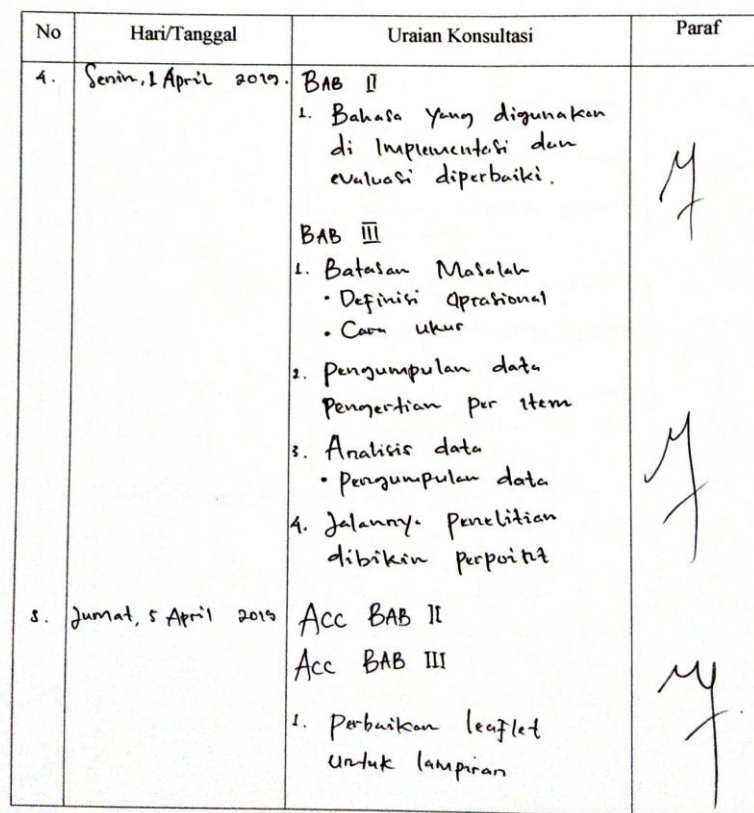 No Hari/Tanggal Uraian Konsultasi Paraf
4. Senin, 1 April 2019. BAB II
1. Bahasa yang digunakan
di Implementasi dan
evaluasi diperbaiki.
BAB III
1. Batasan Masalah
• Definisi Oprasional
• Cara ukur
2. Pengumpulan data
Pengertian Per item
3. Analisis data
• Pengumpulan data
4. Jalannya penelitian
dibikin perpoint
5. Jumat, 5 April 2019 Acc BAB II
Acc BAB III
1. Perbaikan leaflet
untuk lampiran